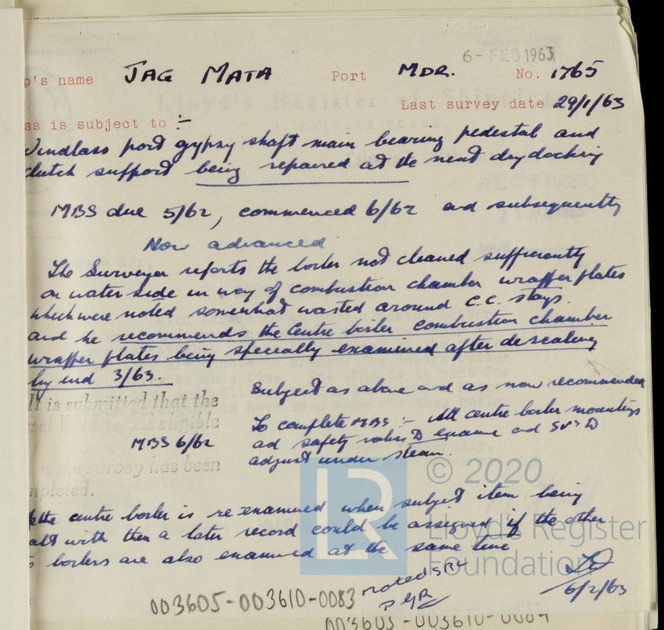 6-FEB1963
p's name JAG MATA Port MDR. No. 1765
Last survey date 29/1/63
ss is subject to :-
Windlass port gypsy shaft main bearing pedestal and
clutch support being repaired at the next drydocking
MBS due 5/62, commenced 6/62 and subsequently
Now advanced
The Surveyor reports the boiler not cleaned sufficiently
on water side in way of combustion chamber wrapper plates
which were noted somewhat wasted around C.C. stays.
and he recommends the Centre boiler combustion chamber
wrapper plates being specially examined after descaling
by end 3/63.
Subject as above and as now recommended
It is submitted that the
To complete MBS :- All centre boiler mountings
eligible
MBS 6/62
and safety valves to examine and SV's to
adjust under steam.
the survey has been
mpleted.
© 2020
LR
Lloyd's Register
Foundation
the centre boiler is re-examined when subject item being
dealt with then a later record could be assigned if the other
boilers are also examined at the same time
noted
6/2/63
003605-003610-0083
003605-003610-0084